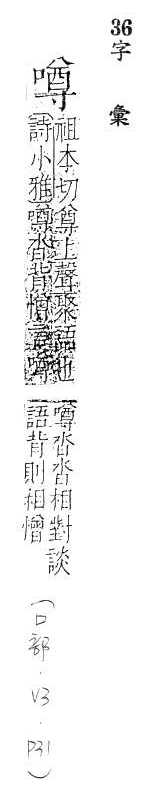 36
字彙
噂
祖本切尊上聲聚語也
詩小雅噂沓背憎言噂
噂沓沓相對談
語背則相憎
(口部.V3.P31)